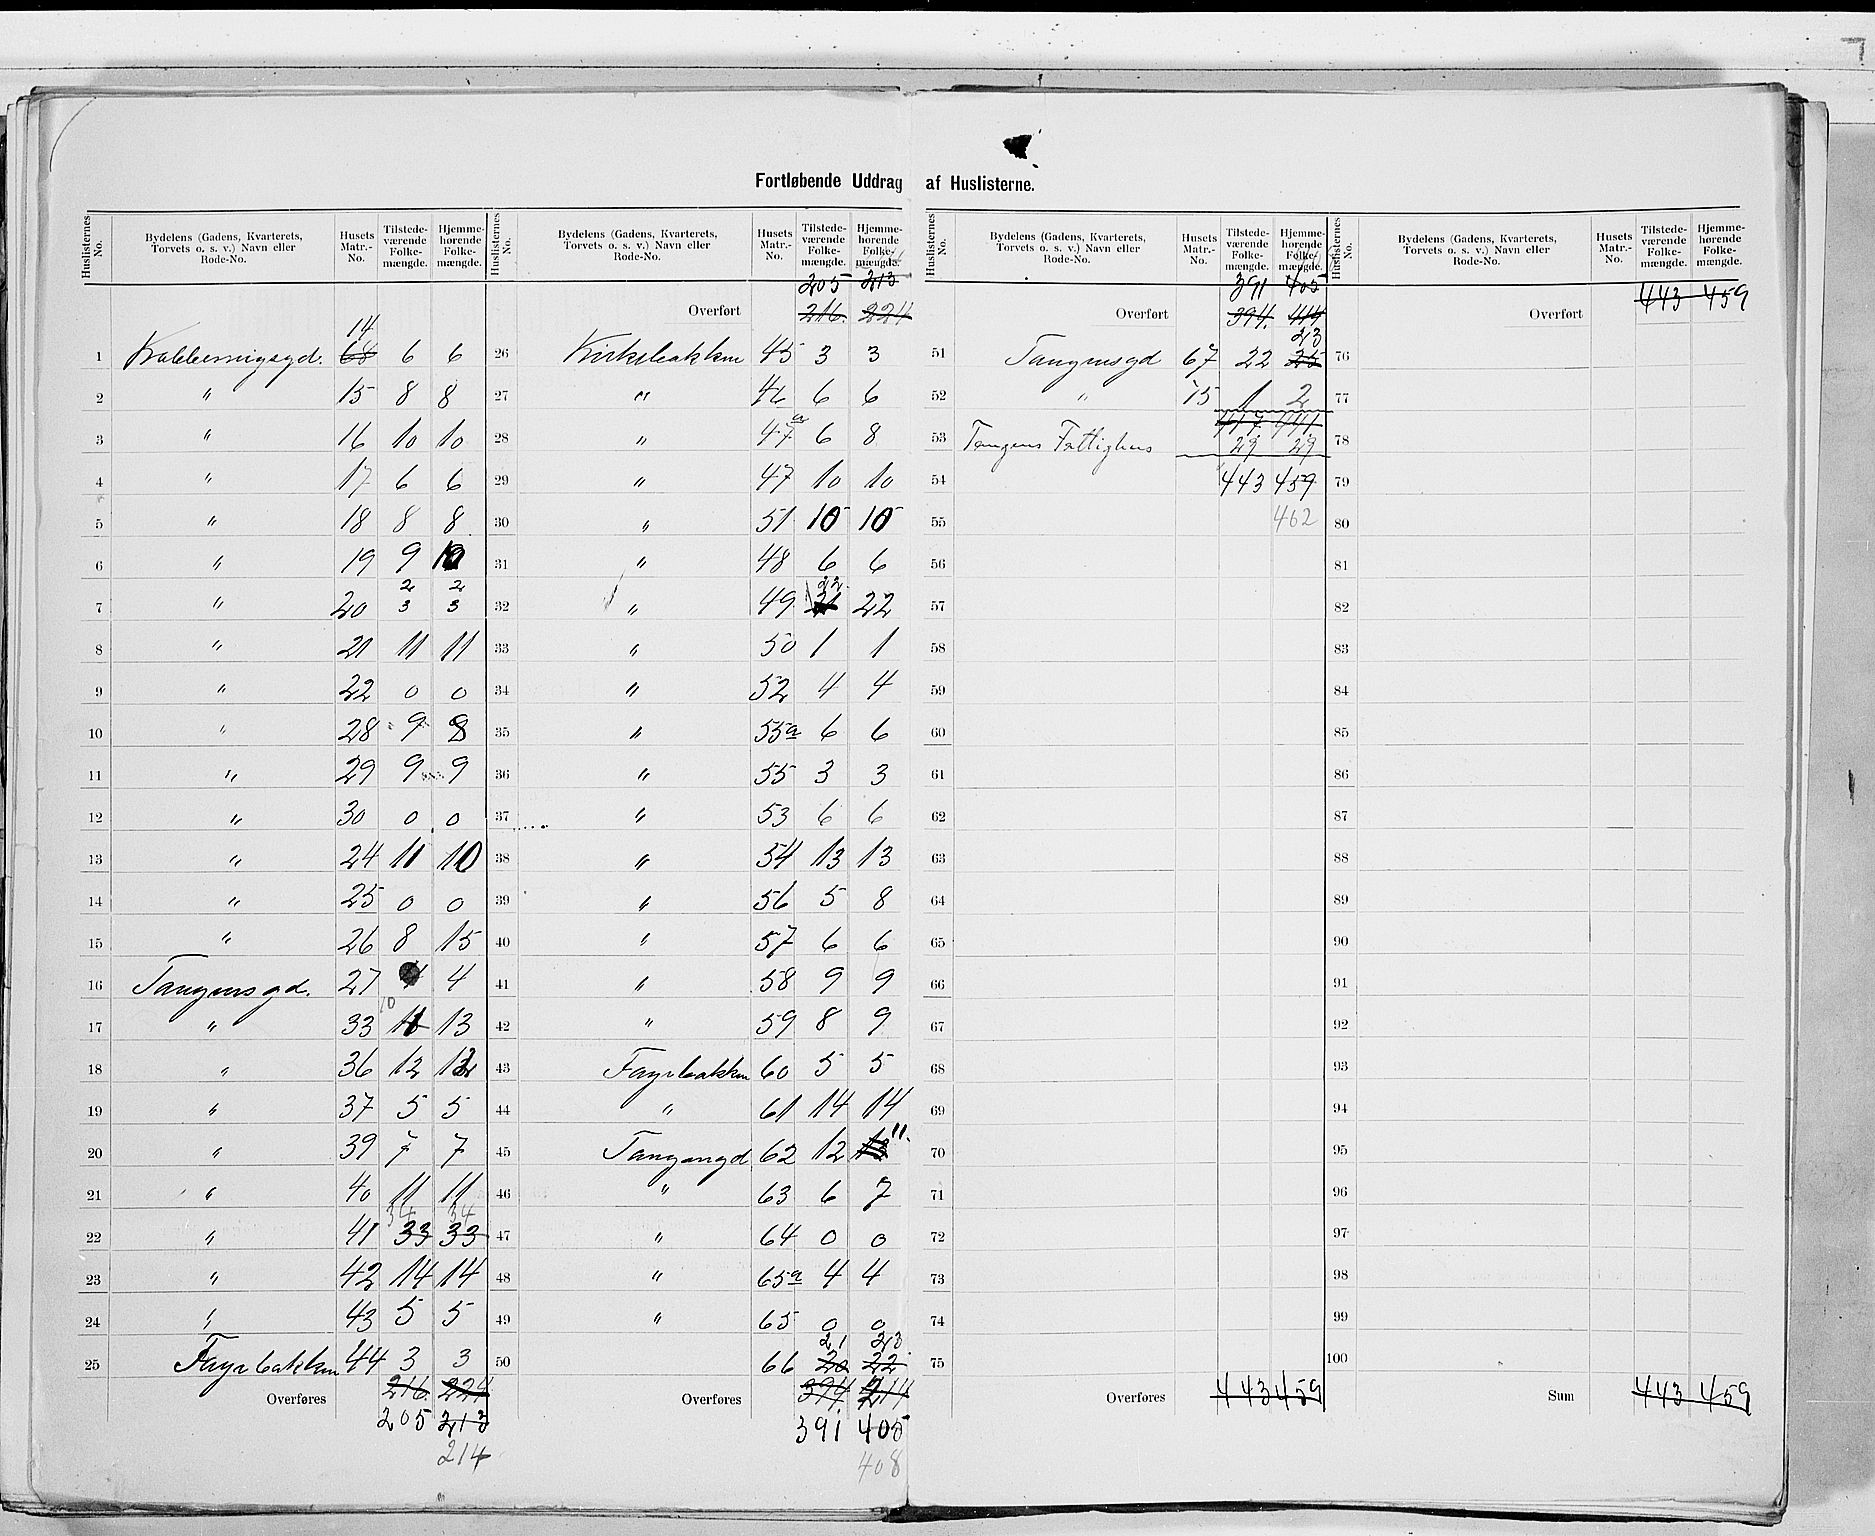 Fortløbende Uddrag af Huslisterne.
Huslisternes No. | Bydelens (Gadens, Kvarterets, Torvets o. s. v.) Navn eller Rode-No. | Husets Matr.-No. | Tilstedeværende Folkemængde. | Hjemmehørende Folkemængde.
1 14 6 6
2 " 15 8 8
3 " 16 10 10
4 " 17 6 6
5 " 18 8 8
6 " 19 9 10
7 " 20 2 3 2 3
8 " 21 11 11
9 " 22 0 0
10 " 28 9 8
11 " 29 9 9
12 " 30 0 0
13 " 24 11 10
14 " 25 0 0
15 " 26 8 15
16 Tangensgd. 27 4 4
17 " 33 10 13
18 " 36 12 12
19 " 37 5 5
20 " 39 7 7
21 " 40 11 11
22 " 41 34 33 34 33
23 " 42 14 14
24 " 43 5 5
25 Fayebakken 44 3 3
Overføres 216 224
205 213
214
Huslisternes No. | Bydelens (Gadens, Kvarterets, Torvets o. s. v.) Navn eller Rode-No. | Husets Matr.-No. | Tilstedeværende Folkemængde. | Hjemmehørende Folkemængde.
205 213
Overført 216. 224
26 Kirkebakken 45 3 3
27 " 46 6 6
28 " 47 a 6 8
29 " 47 10 10
30 " 51 10 10
31 " 48 6 6
32 " 49 22 21 22
33 " 50 1 1
34 " 52 4 4
35 " 55a 6 6
36 " 55 3 3
37 " 53 6 6
38 " 54 13 13
39 " 56 5 8
40 " 57 6 6
41 " 58 9 9
42 " 59 8 9
43 Fayebakken 60 5 5
44 " 61 14 14
45 Tangengd 62 12 11.
46 " 63 6 7
47 " 64 0 0
48 " 65a 4 4
49 " 65 0 0
50 66 21 20 23 22
Overføres 394 214
391 405
408
Huslisternes No. | Bydelens (Gadens, Kvarterets, Torvets o. s. v.) Navn eller Rode-No. | Husets Matr.-No. | Tilstedeværende Folkemængde. | Hjemmehørende Folkemængde.
391 405
Overført 394. 414
51 Tangensgd 67 22 23 25
52 " 75 1 2
417 441
53 Tangens Fattighus 29 29
54 443 459
55 462
56
57
58
59
60
61
62
63
64
65
66
67
68
69
70
71
72
73
74
75
Overføres 443 459
Huslisternes No. | Bydelens (Gadens, Kvarterets, Torvets o. s. v.) Navn eller Rode-No. | Husets Matr.-No. | Tilstedeværende Folkemængde. | Hjemmehørende Folkemængde.
Overført 443 459
76
77
78
79
80
81
82
83
84
85
86
87
88
89
90
91
92
93
94
95
96
97
98
99
100
Sum 443 459